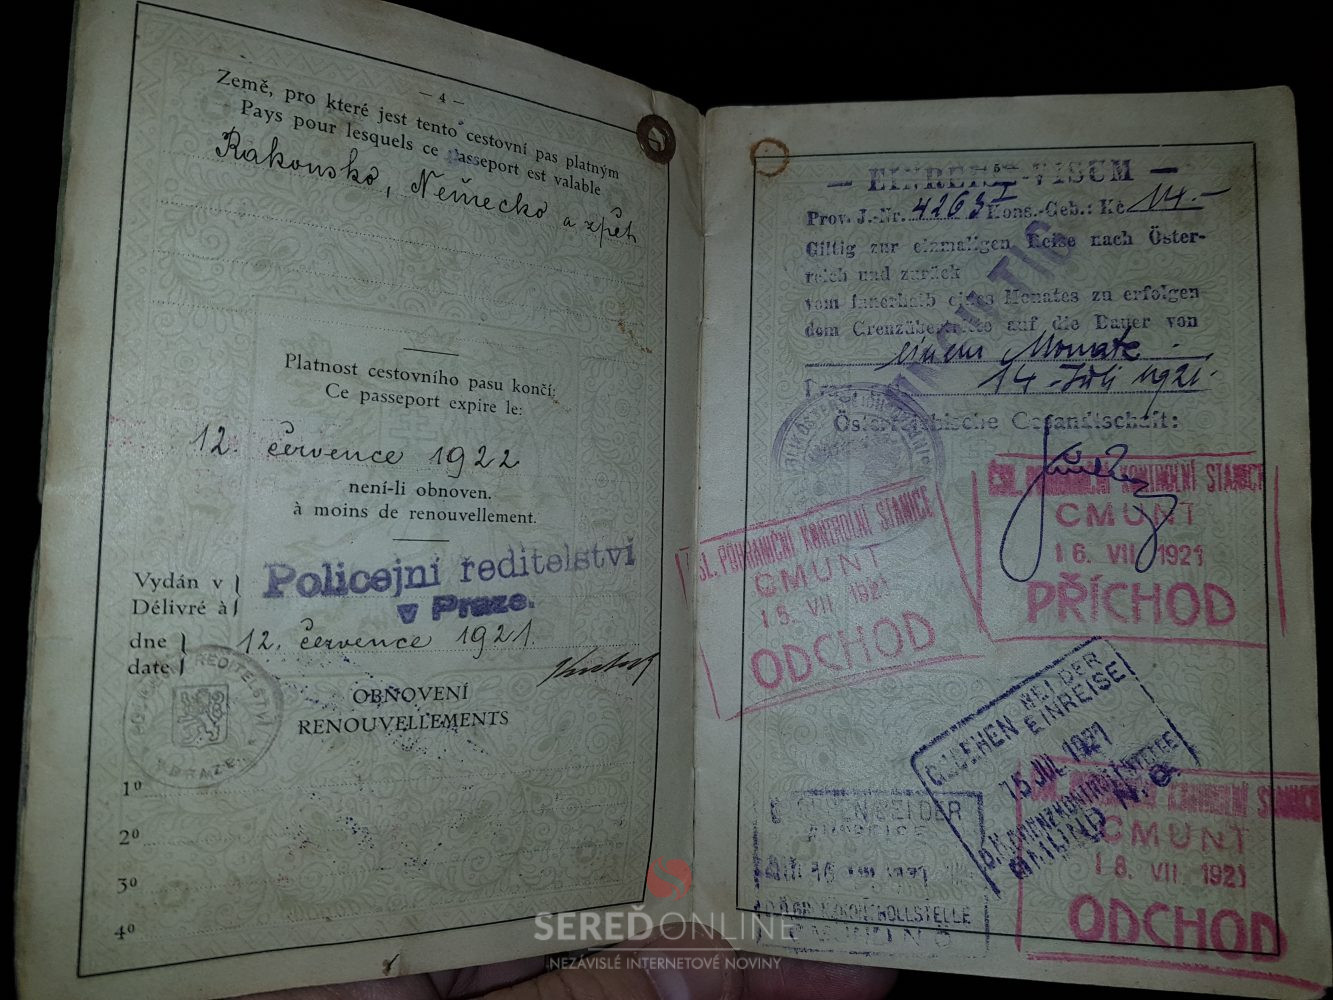 — 4 —
Země, pro které jest tento cestovní pas platným
Pays pour lesquels ce passeport est valable
Rakousko, Německo a zpět
Platnost cestovního pasu končí:
Ce passeport expire le:
12. července 1922
není-li obnoven.
à moins de renouvellement.
Vydán v
Délivré à
Policejní ředitelství
v Praze.
dne
date
12. července 1921.
OBNOVENÍ
RENOUVELLEMENTS
1º
2º
3º
4º
— EINREISE-VISUM —
Prov. J.-Nr. 4263 Kons.-Geb.: Kč 14.-
Giltig zur einmaligen Reise nach Öster-
reich und zurück
vom innerhalb eines Monates zu erfolgen
dem Grenzübertritte auf die Dauer von
einem Monate
Prag 14. Juli 1921.
GRATIS
Österreichische Gesandtschaft:
ČSL. POHRANIČNÍ KONTROLNÍ STANICE
GMUNT
VII 1921
ODCHOD
ČSL. POHRANIČNÍ KONTROLNÍ STANICE
GMUNT
16. VII. 1921
PŘÍCHOD
GESEHEN BEI DER
EINREISE
15 JUL. 1921
GRENZKONTROLLSTELLE
GMÜND N.Ö.
GESEHEN BEI DER
AUSREISE
AM 16
GRENZKONTROLLSTELLE
GMÜND N.Ö
POHRANIČNÍ KONTROLNÍ STANICE
GMUNT
18. VII. 1921
ODCHOD
SEREĎONLINE
NEZÁVISLÉ INTERNETOVÉ NOVINY